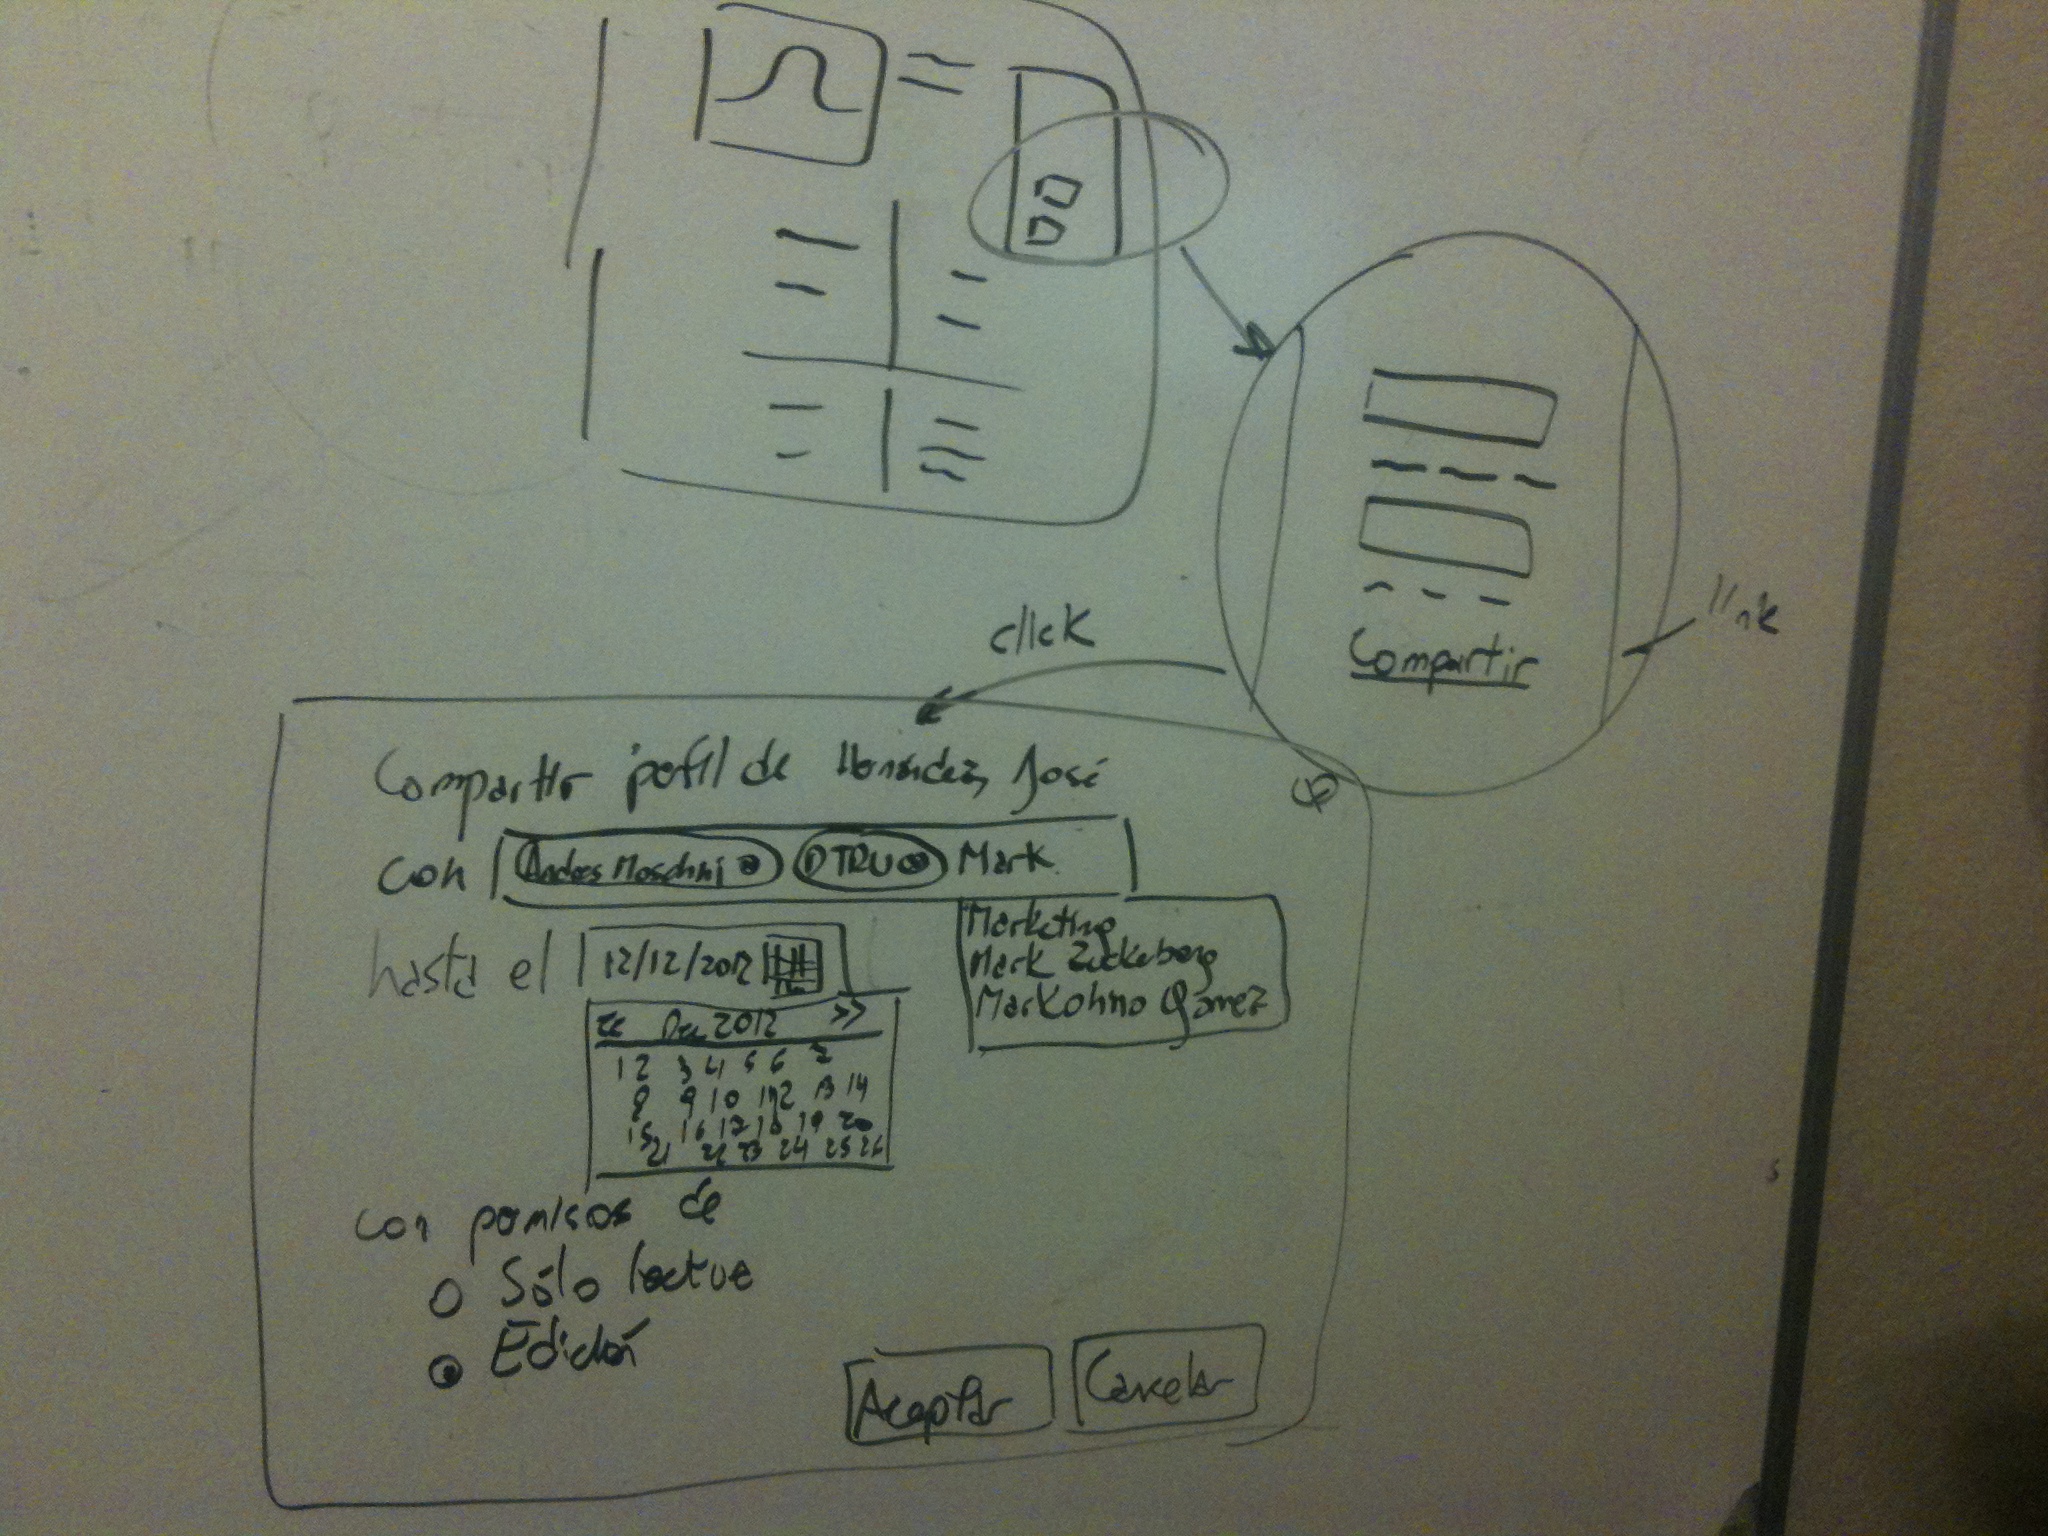 link
click
Compartir
Compartir perfil de Hernández, José
con Andres Moschini DTRU Mark
Marketing
Mark Zuckeberg
Markohno Gomez
hasta el 12/12/2012
<< Dec 2012 >>
1 2 3 4 5 6 7
8 9 10 11 12 13 14
15 16 17 18 19 20
21 22 23 24 25 26
con permisos de
Sólo lectura
Edición
Aceptar Cancelar